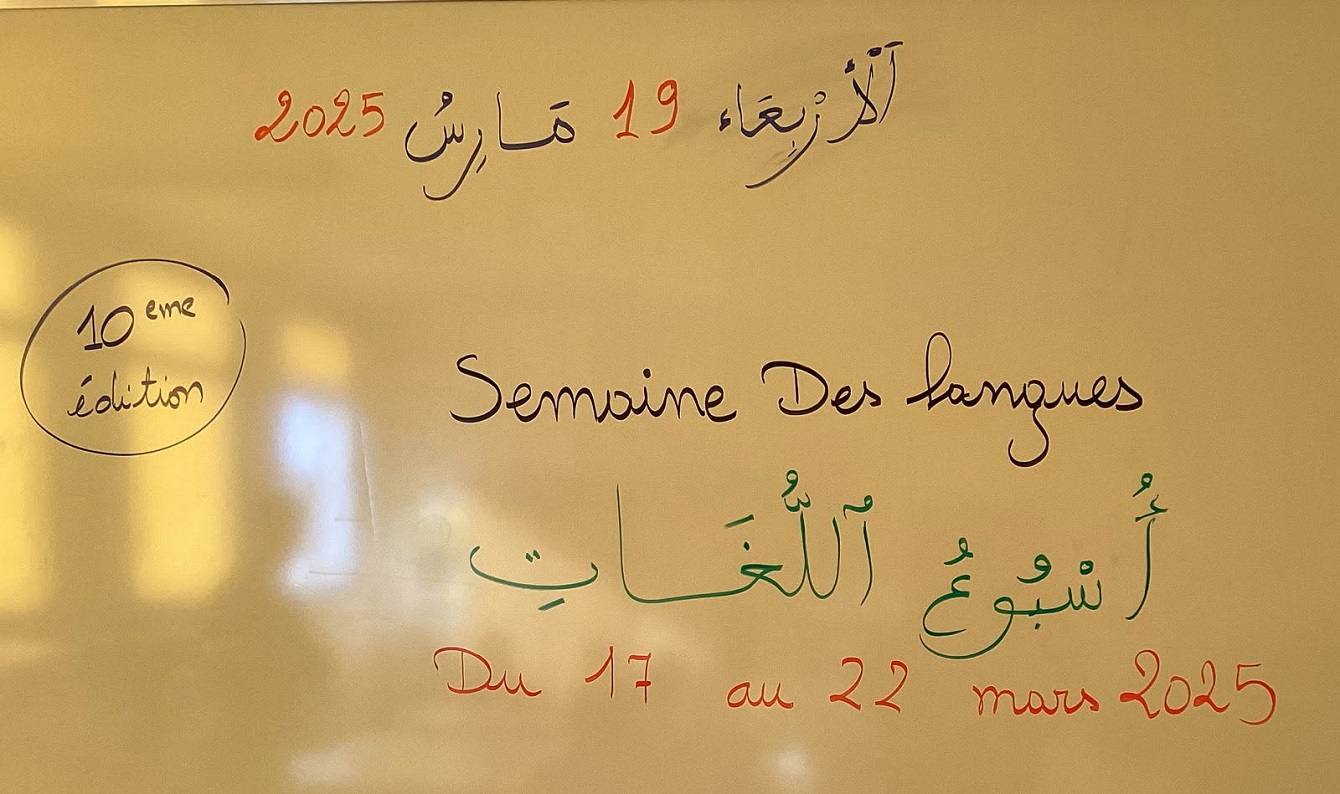 اَلْأَرْبِعَاء 19 مَارِسُ 2025
10 eme
édition
Semaine Des langues
أُسْبُوعُ ٱللُّغَاتِ
Du 17 au 22 mars 2025